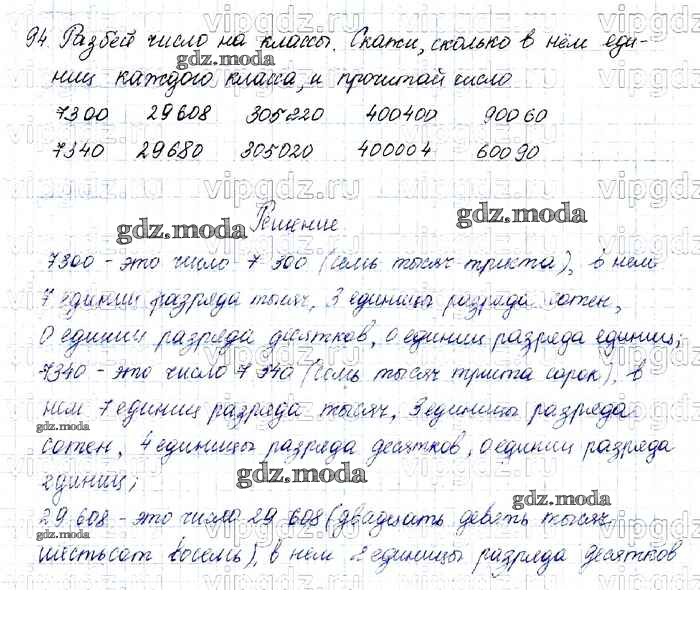 94. Разбей число на классы. Скажи, сколько в нём еди-
ниц каждого класса, и прочитай число
7300 29608 305220 400400 90060
7340 29680 305020 400004 60090
Решение
7300 - это число 7 300 (семь тысяч триста), в нем
7 единиц разряда тысяч, 3 единицы разряда сотен,
0 единиц разряда десятков, 0 единиц разряда единиц;
7340 - это число 7 340 (семь тысяч триста сорок), в
нем 7 единиц разряда тысяч, 3 единицы разряда
сотен, 4 единицы разряда десятков, 0 единиц разряда
единиц;
29 608 - это число 29 608 (двадцать девять тысяч
шестьсот восемь), в нем 2 единицы разряда десятков
gdz.moda
gdz.moda
gdz.moda
gdz.moda
gdz.moda
gdz.moda
vipgdz.ru